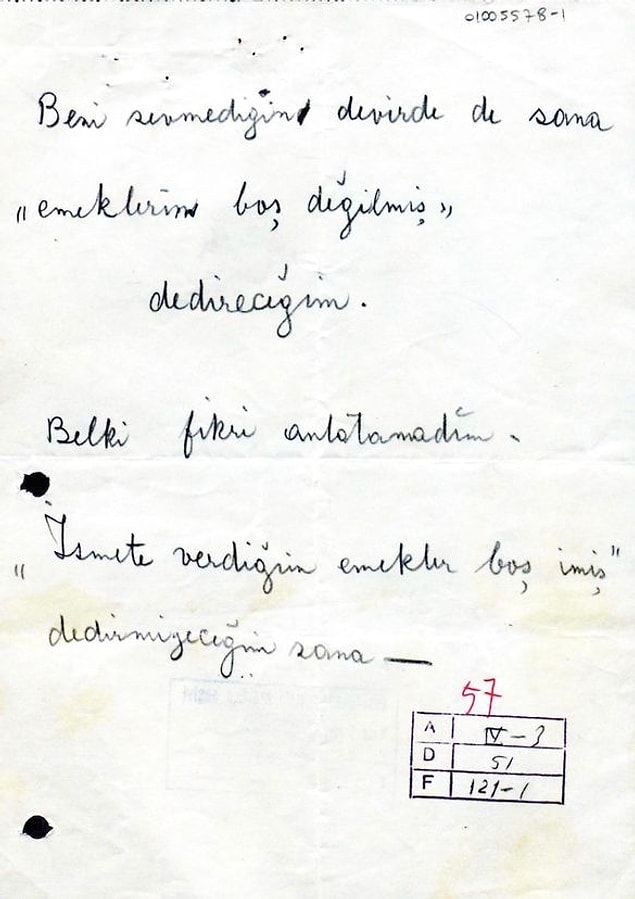 01005578-1
Beni sevmediğin devirde de sana
„emeklerim boş değilmiş„
dedireceğim.
Belki fikri anlatamadım.
„İsmete verdiğim emekler boş imiş"
dedirmiyeceğim sana —
57
A IV-3
D 51
F 121-1